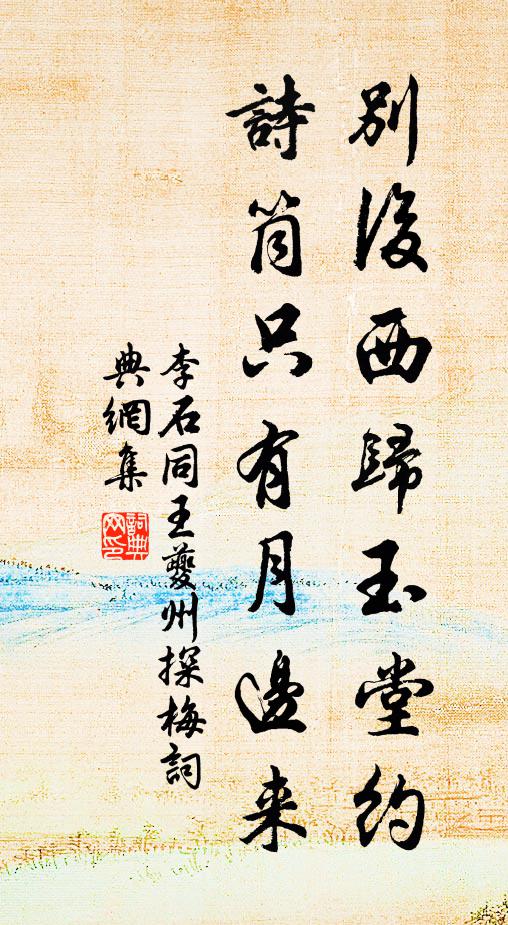 別後西歸玉堂約
詩筒只有月邊来
李石同王夔州探梅詞
典網集
詞典
网印